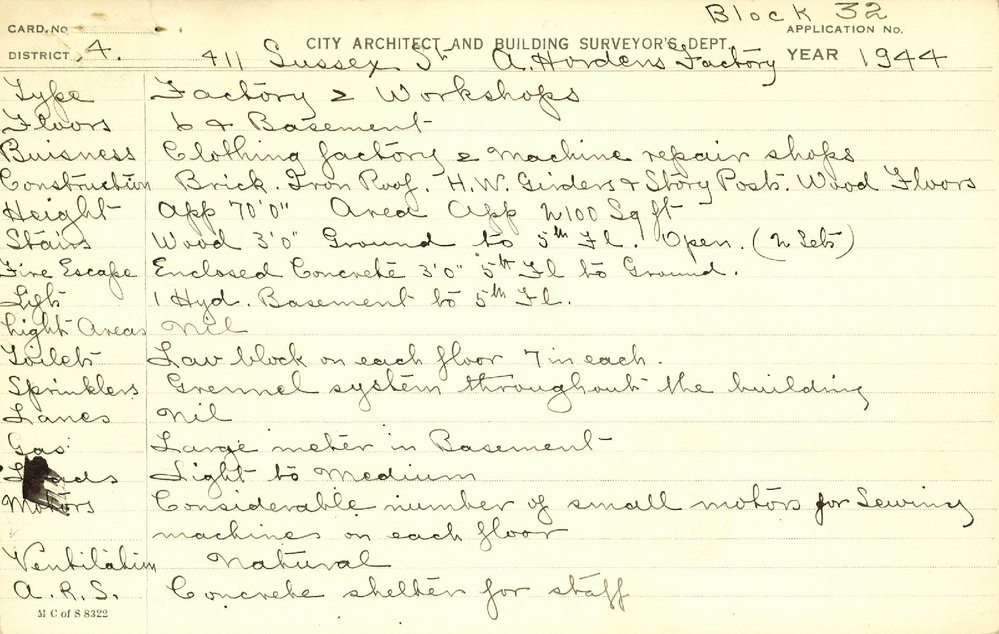 Block 32
CARD. No APPLICATION No.
CITY ARCHITECT AND BUILDING SURVEYOR'S DEPT.
DISTRICT 4. 411 Sussex St A. Hordens Factory YEAR 1944
Type Factory & Workshops
Floors 6 & Basement
Buisness Clothing factory & machine repair shops
Construction Brick. Iron Roof. H.W. Girders & Story Posts. Wood Floors
Height App 70'0" Area App 2100 Sq ft
Stairs Wood 3'0" Ground to 5th Fl. Open. (2 Sets)
Fire Escape Enclosed Concrete 3'0" 5th Fl to Ground.
Lift 1 Hyd. Basement to 5th Fl.
Light Areas Nil
Toilets Lav block on each floor 7 in each.
Sprinklers Grennel system throughout the building
Lanes Nil
Gas Large meter in Basement
Loads Light to Medium
Motors Considerable number of small motors for Sewing
machines on each floor
Ventilation Natural
A.R.S. Concrete shelter for staff
M C of S 8322